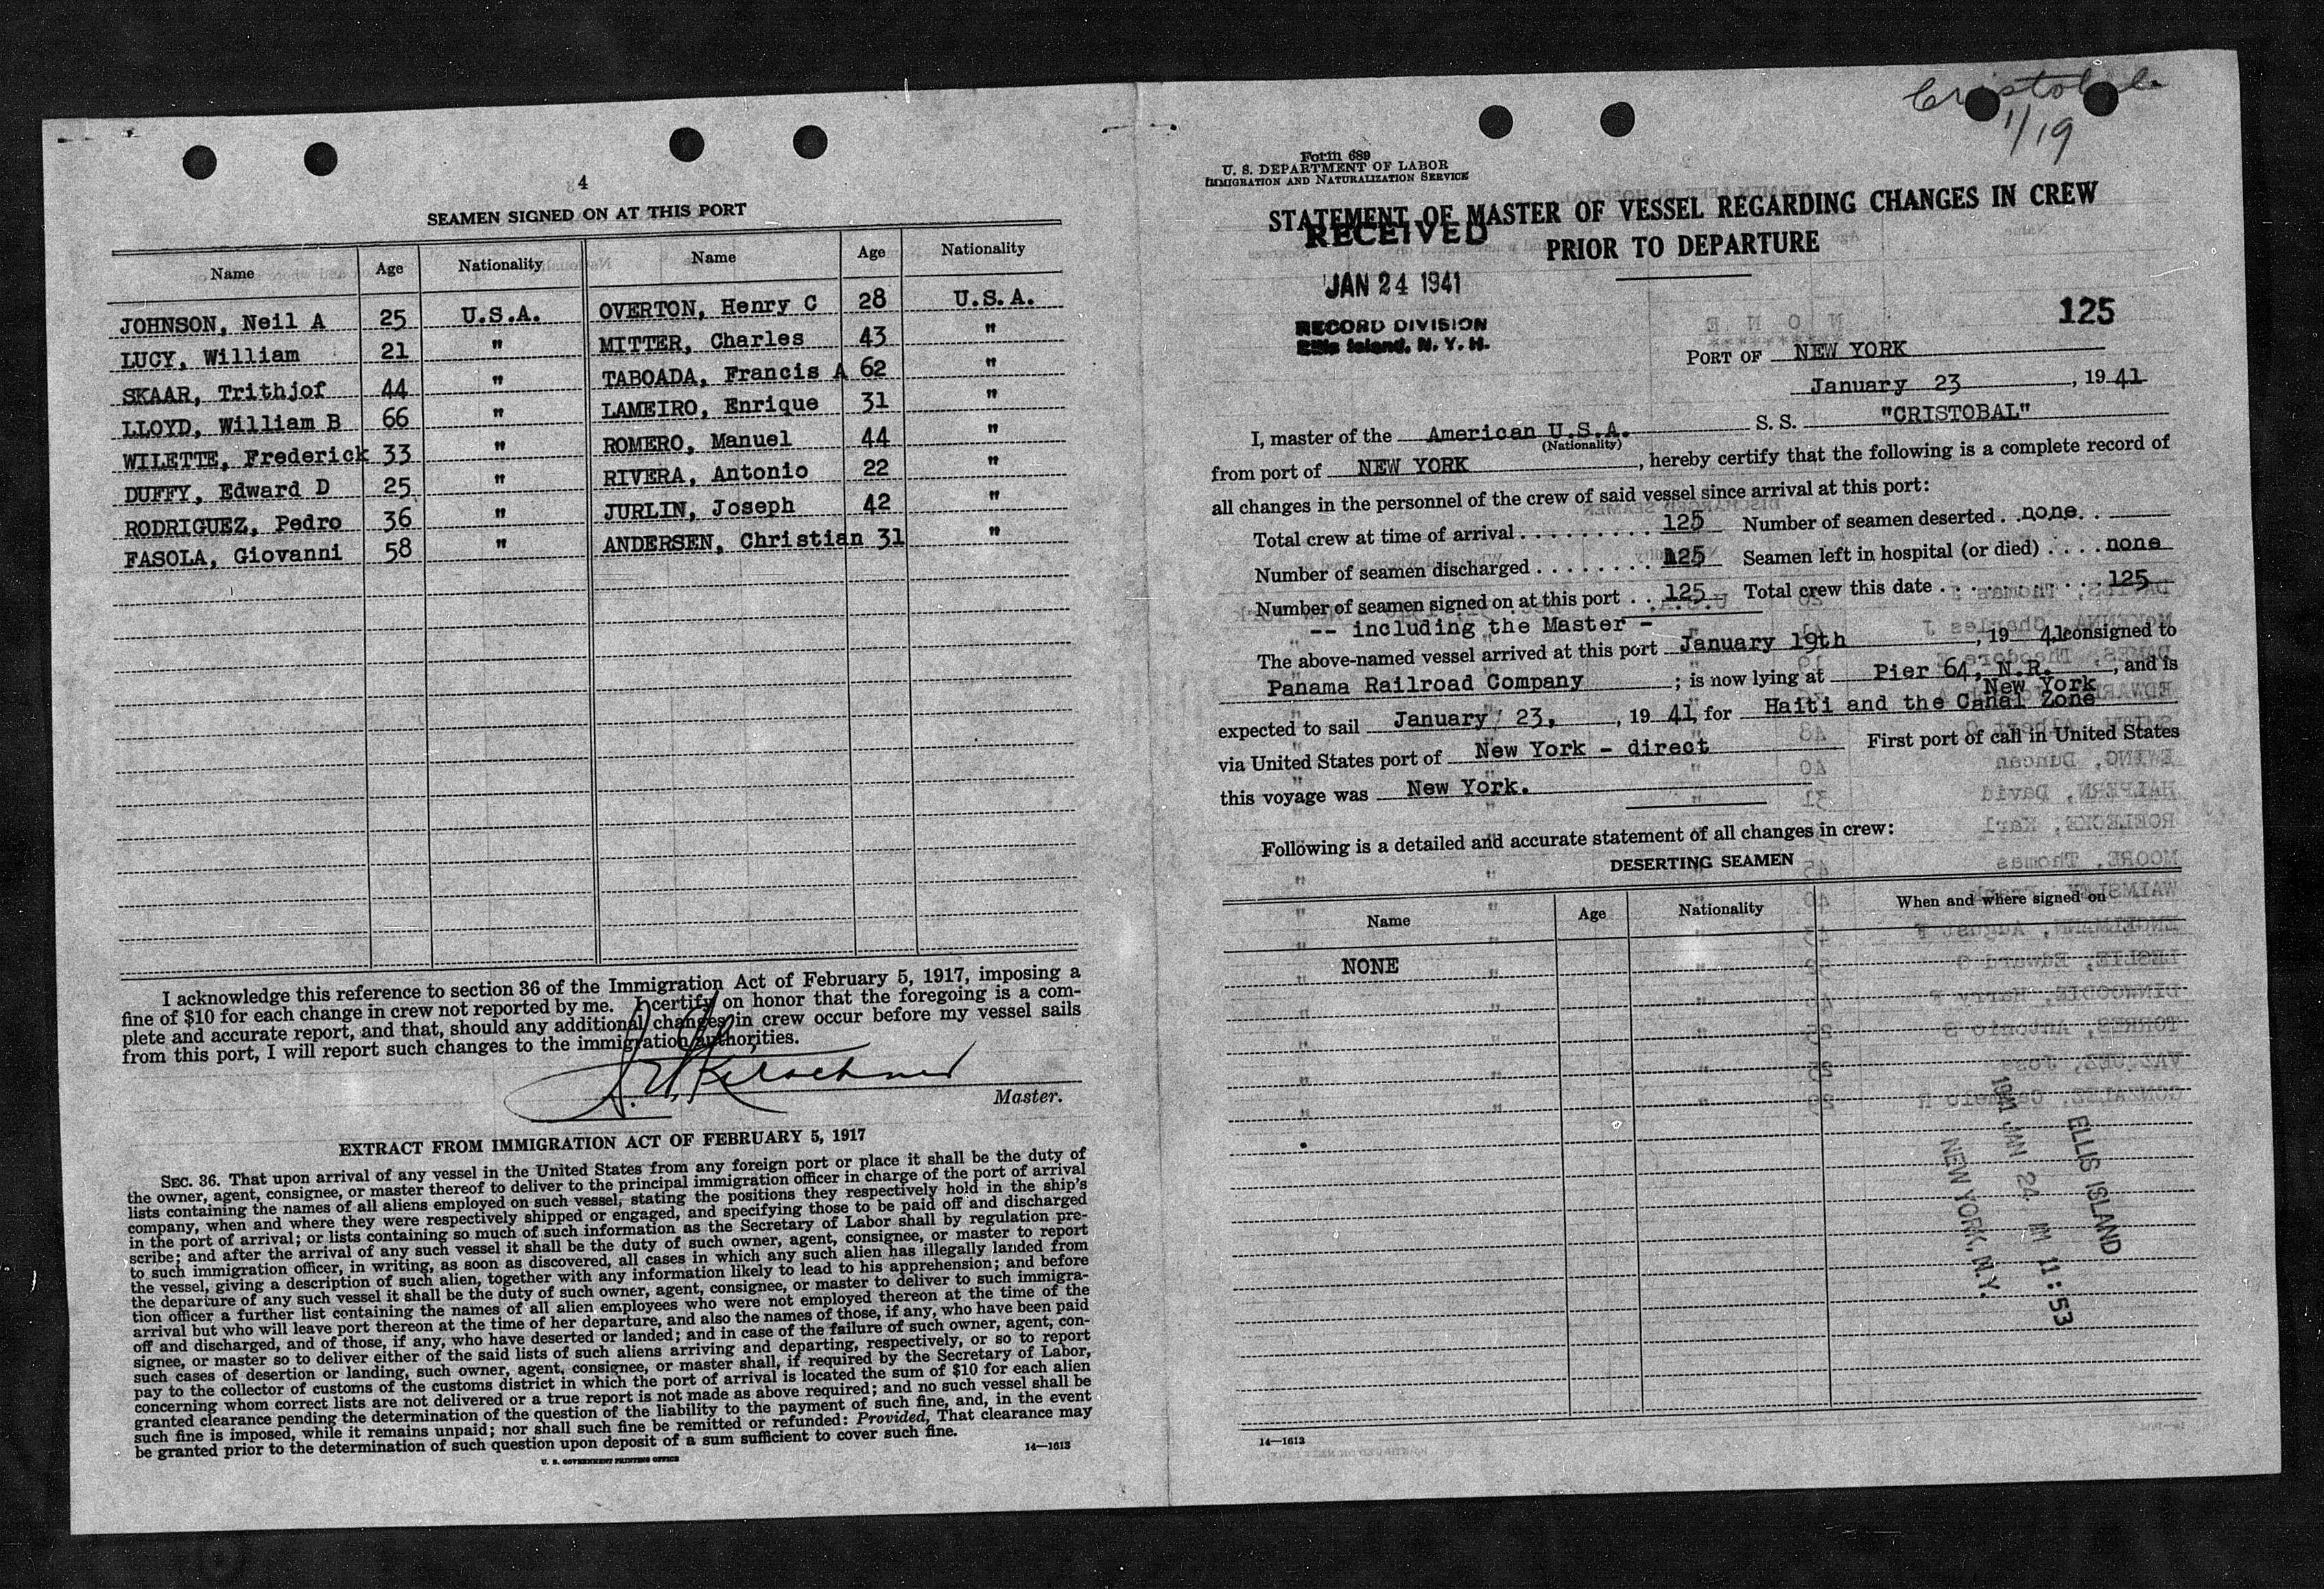 4
SEAMEN SIGNED ON AT THIS PORT
Name Age Nationality Name Age Nationality
JOHNSON, Neil A 25 U.S.A. OVERTON, Henry C 28 U.S.A.
LUCY, William 21 " MITTER, Charles 43 "
SKAAR, Trithjof 44 " TABOADA, Francis A 62 "
LLOYD, William B 66 " LAMEIRO, Enrique 31 "
WILETTE, Frederick 33 " ROMERO, Manuel 44 "
DUFFY, Edward D 25 " RIVERA, Antonio 22 "
RODRIGUEZ, Pedro 36 " JURLIN, Joseph 42 "
FASOLA, Giovanni 58 " ANDERSEN, Christian 31 "
I acknowledge this reference to section 36 of the Immigration Act of February 5, 1917, imposing a
fine of $10 for each change in crew not reported by me. I certify on honor that the foregoing is a com-
plete and accurate report, and that, should any additional changes in crew occur before my vessel sails
from this port, I will report such changes to the immigration authorities.
Master.
EXTRACT FROM IMMIGRATION ACT OF FEBRUARY 5, 1917
SEC. 36. That upon arrival of any vessel in the United States from any foreign port or place it shall be the duty of
the owner, agent, consignee, or master thereof to deliver to the principal immigration officer in charge of the port of arrival
lists containing the names of all aliens employed on such vessel, stating the positions they respectively hold in the ship's
company, when and where they were respectively shipped or engaged, and specifying those to be paid off and discharged
in the port of arrival; or lists containing so much of such information as the Secretary of Labor shall by regulation pre-
scribe; and after the arrival of any such vessel it shall be the duty of such owner, agent, consignee, or master to report
to such immigration officer, in writing, as soon as discovered, all cases in which any such alien has illegally landed from
the vessel, giving a description of such alien, together with any information likely to lead to his apprehension; and before
the departure of any such vessel it shall be the duty of such owner, agent, consignee, or master to deliver to such immigra-
tion officer a further list containing the names of all alien employees who were not employed thereon at the time of the
arrival but who will leave port thereon at the time of her departure, and also the names of those, if any, who have been paid
off and discharged, and of those, if any, who have deserted or landed; and in case of the failure of such owner, agent, con-
signee, or master so to deliver either of the said lists of such aliens arriving and departing, respectively, or so to report
such cases of desertion or landing, such owner, agent, consignee, or master shall, if required by the Secretary of Labor,
pay to the collector of customs of the customs district in which the port of arrival is located the sum of $10 for each alien
concerning whom correct lists are not delivered or a true report is not made as above required; and no such vessel shall be
granted clearance pending the determination of the question of the liability to the payment of such fine, and, in the event
such fine is imposed, while it remains unpaid; nor shall such fine be remitted or refunded: Provided, That clearance may
be granted prior to the determination of such question upon deposit of a sum sufficient to cover such fine.
14—1613
U. S. GOVERNMENT PRINTING OFFICE
Cristobal
1/19
Form 689
U. S. DEPARTMENT OF LABOR
IMMIGRATION AND NATURALIZATION SERVICE
STATEMENT OF MASTER OF VESSEL REGARDING CHANGES IN CREW
PRIOR TO DEPARTURE
RECEIVED
JAN 24 1941
RECORD DIVISION
Ellis Island, N. Y. H.
125
PORT OF NEW YORK
January 23, 19 41
I, master of the American U.S.A. S. S. "CRISTOBAL"
(Nationality)
from port of NEW YORK, hereby certify that the following is a complete record of
all changes in the personnel of the crew of said vessel since arrival at this port:
Total crew at time of arrival 125 Number of seamen deserted none
Number of seamen discharged 125 Seamen left in hospital (or died) none
Number of seamen signed on at this port 125 Total crew this date 125
-- including the Master -
The above-named vessel arrived at this port January 19th, 19 41 consigned to
Panama Railroad Company; is now lying at Pier 64, N.R. New York, and is
expected to sail January 23, 19 41, for Haiti and the Canal Zone
via United States port of New York - direct First port of call in United States
this voyage was New York.
Following is a detailed and accurate statement of all changes in crew:
DESERTING SEAMEN
Name Age Nationality When and where signed on
NONE
ELLIS ISLAND
1941 JAN 24 AM 11:53
NEW YORK, N.Y.
14—1613